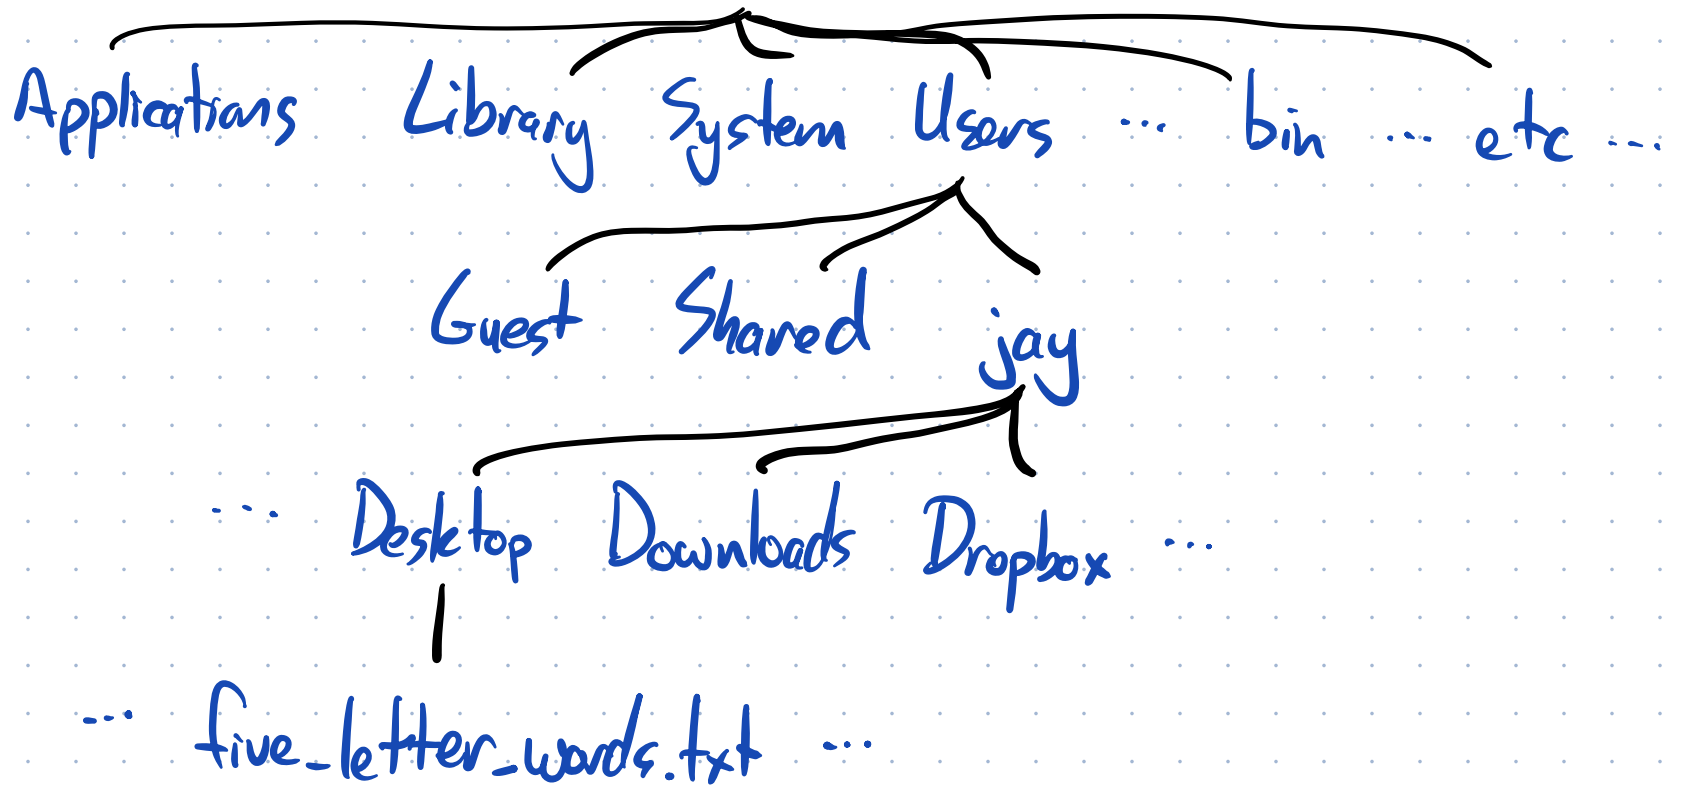 Applications Library System Users ... bin ... etc ...
Guest Shared jay
... Desktop Downloads Dropbox ...
... five_letter_words.txt ...